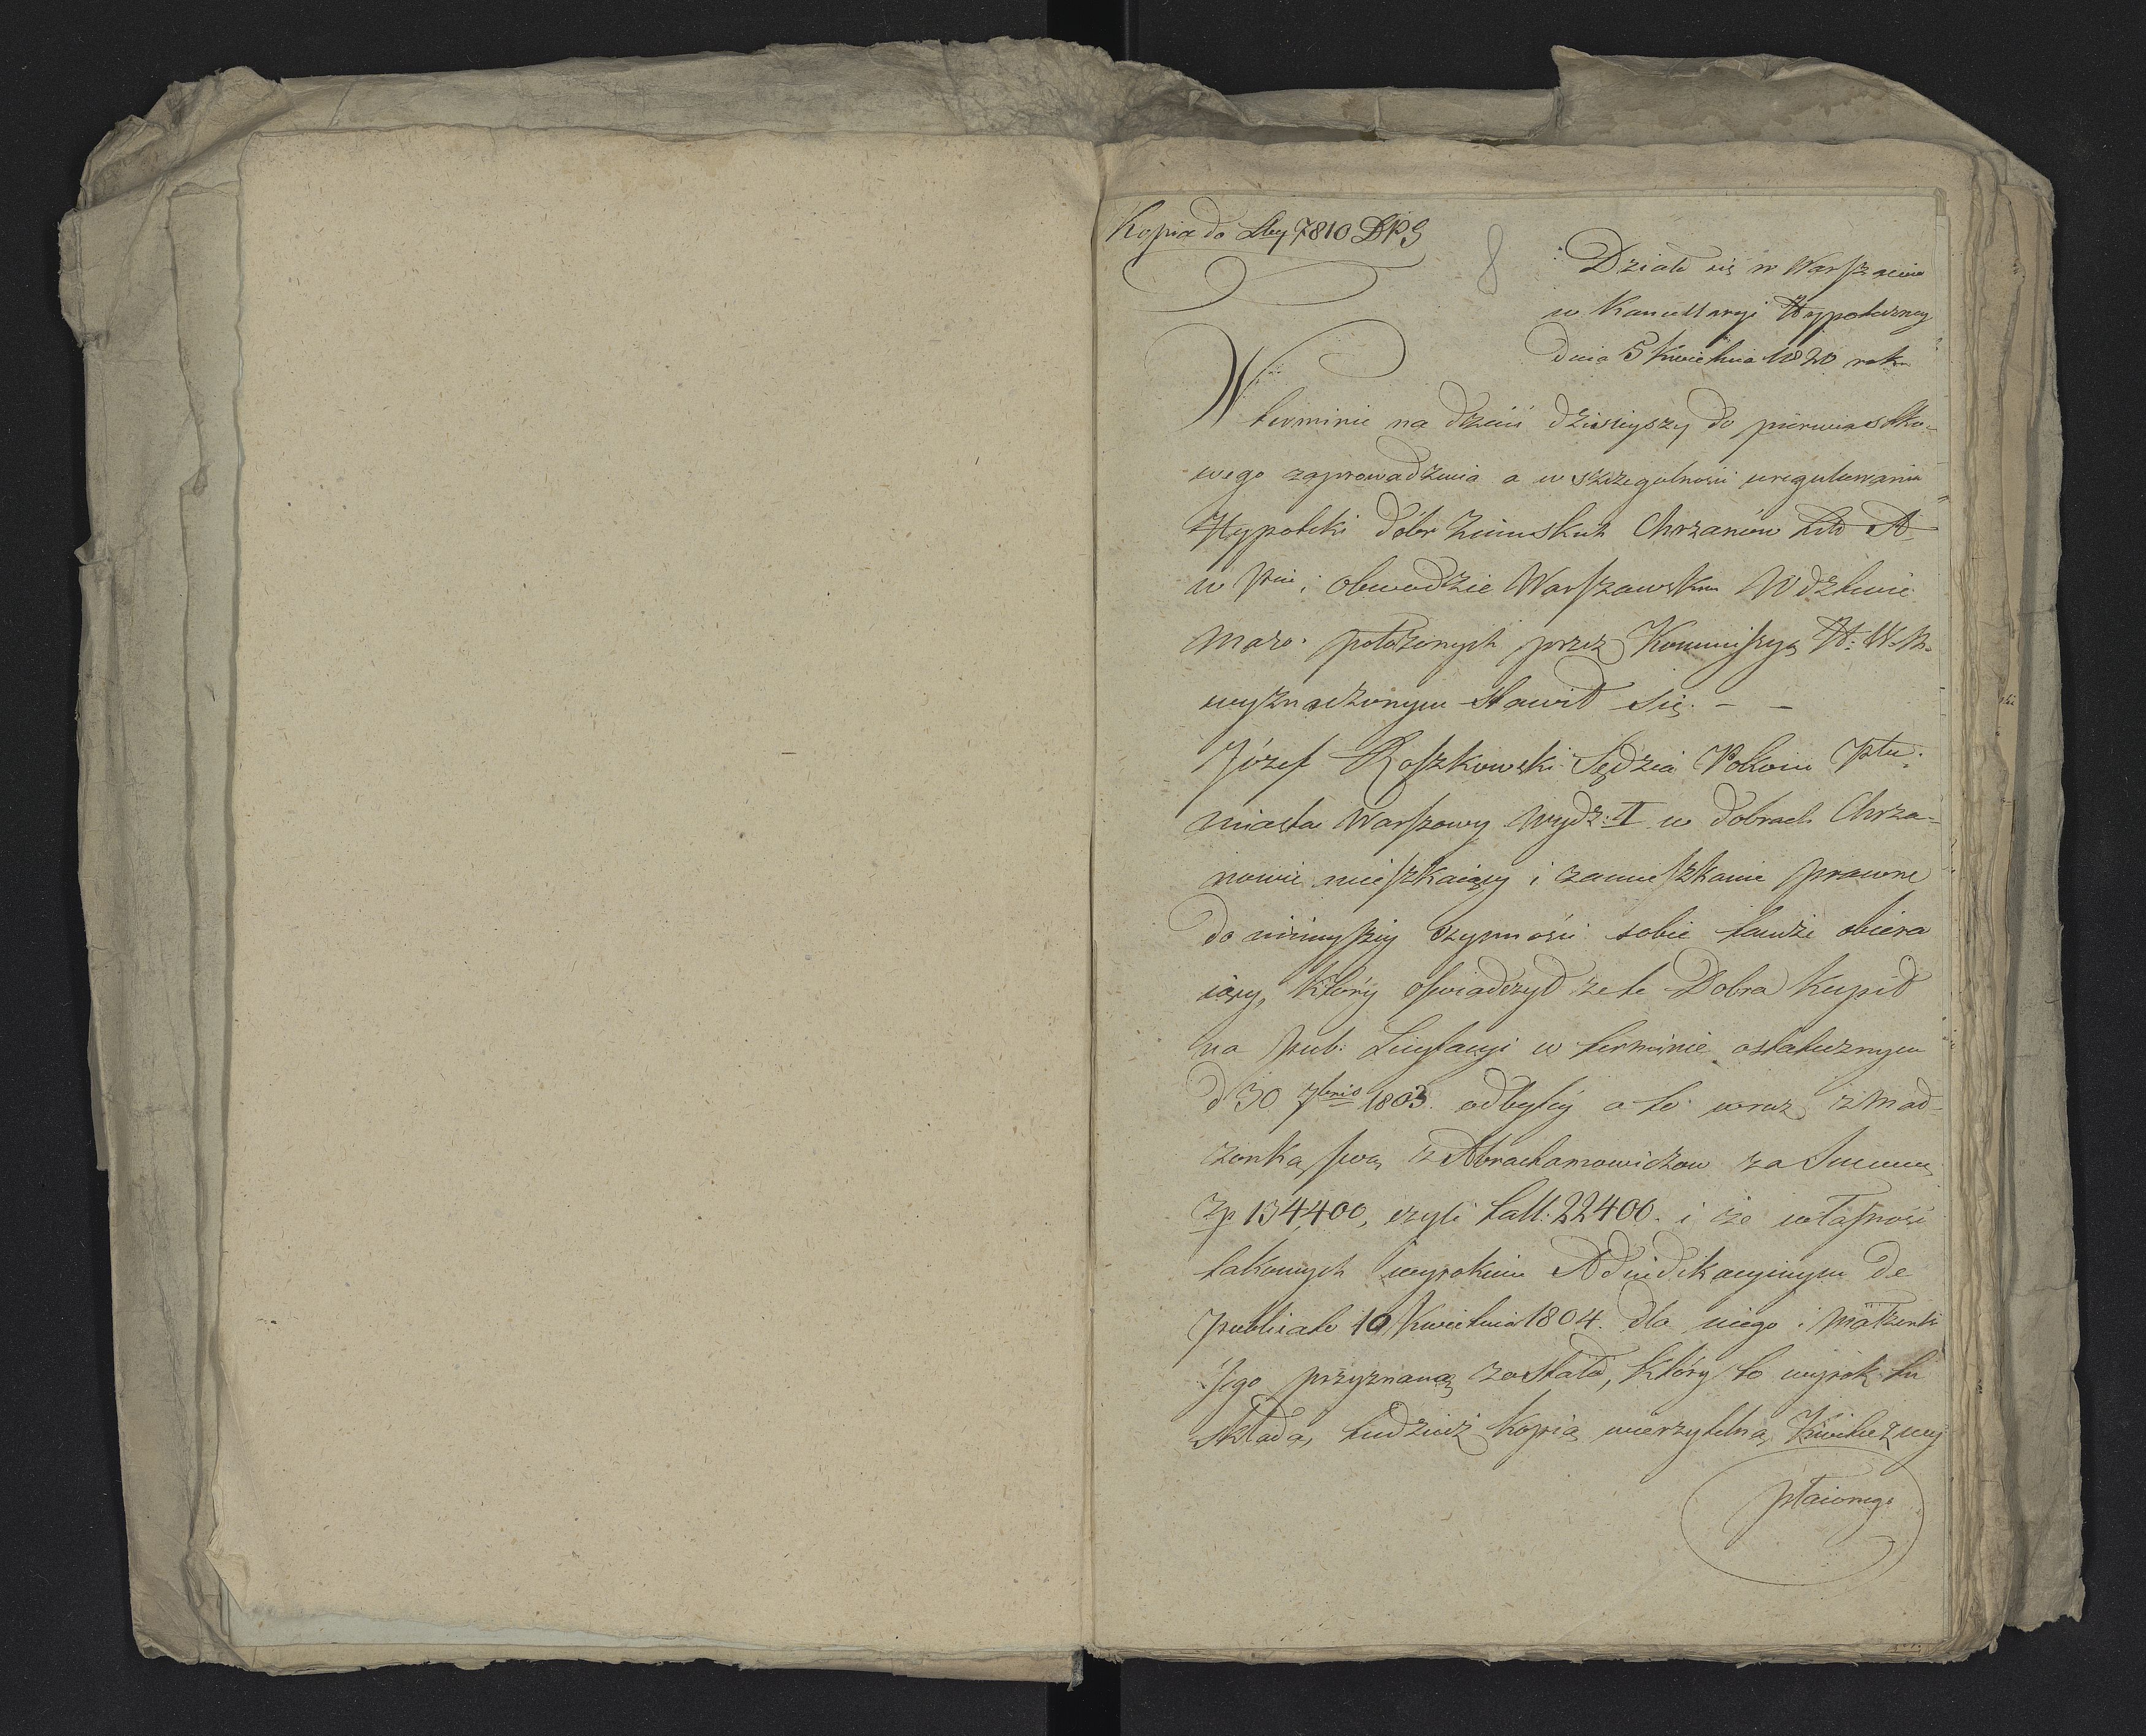 Kopia do Lby 7810 DPS
8
Działo się w Warszawie
w Kancellaryi Hypoteczney
dnia 5 Kwietnia 1820 roku
W terminie na dzień dzisieyszy do pierwiastko-
wego zaprowadzenia a w szczegulności uregulowania
Hypoteki dóbr Ziemskich Chrzanów Litt A
w Pcie i obwodzie Warszawskim Wdztwie
Mazo: położonych przez Kommissyą H: W. M.
wyznaczonym stawił się. – –
Józef Roszkowski Sędzia Pokoiu Ptu:
miasta Warszawy Wydz: II w dobrach Chrza-
nowie mieszkaiący i zamieszkanie prawne
do ninieyszey czynności sobie tamże obiera
iący, który oświadczył że te Dobra kupił
na pub: Licytacyi w terminie ostatecznym
d 30 7bris 1803. odbytey a to wraz z Mał-
żonką swą z Abrachamowiczow za Summę
Zp 134400, czyli tall: 22400. i że własność
takowych wyrokiem Adiudikacyinym de
publicato 10 Kwietnia 1804. dla niego i Małżonki
Jego przyznaną została, który to wyrok tu
składa, tudzież kopią wierzytelną Kwietuzney